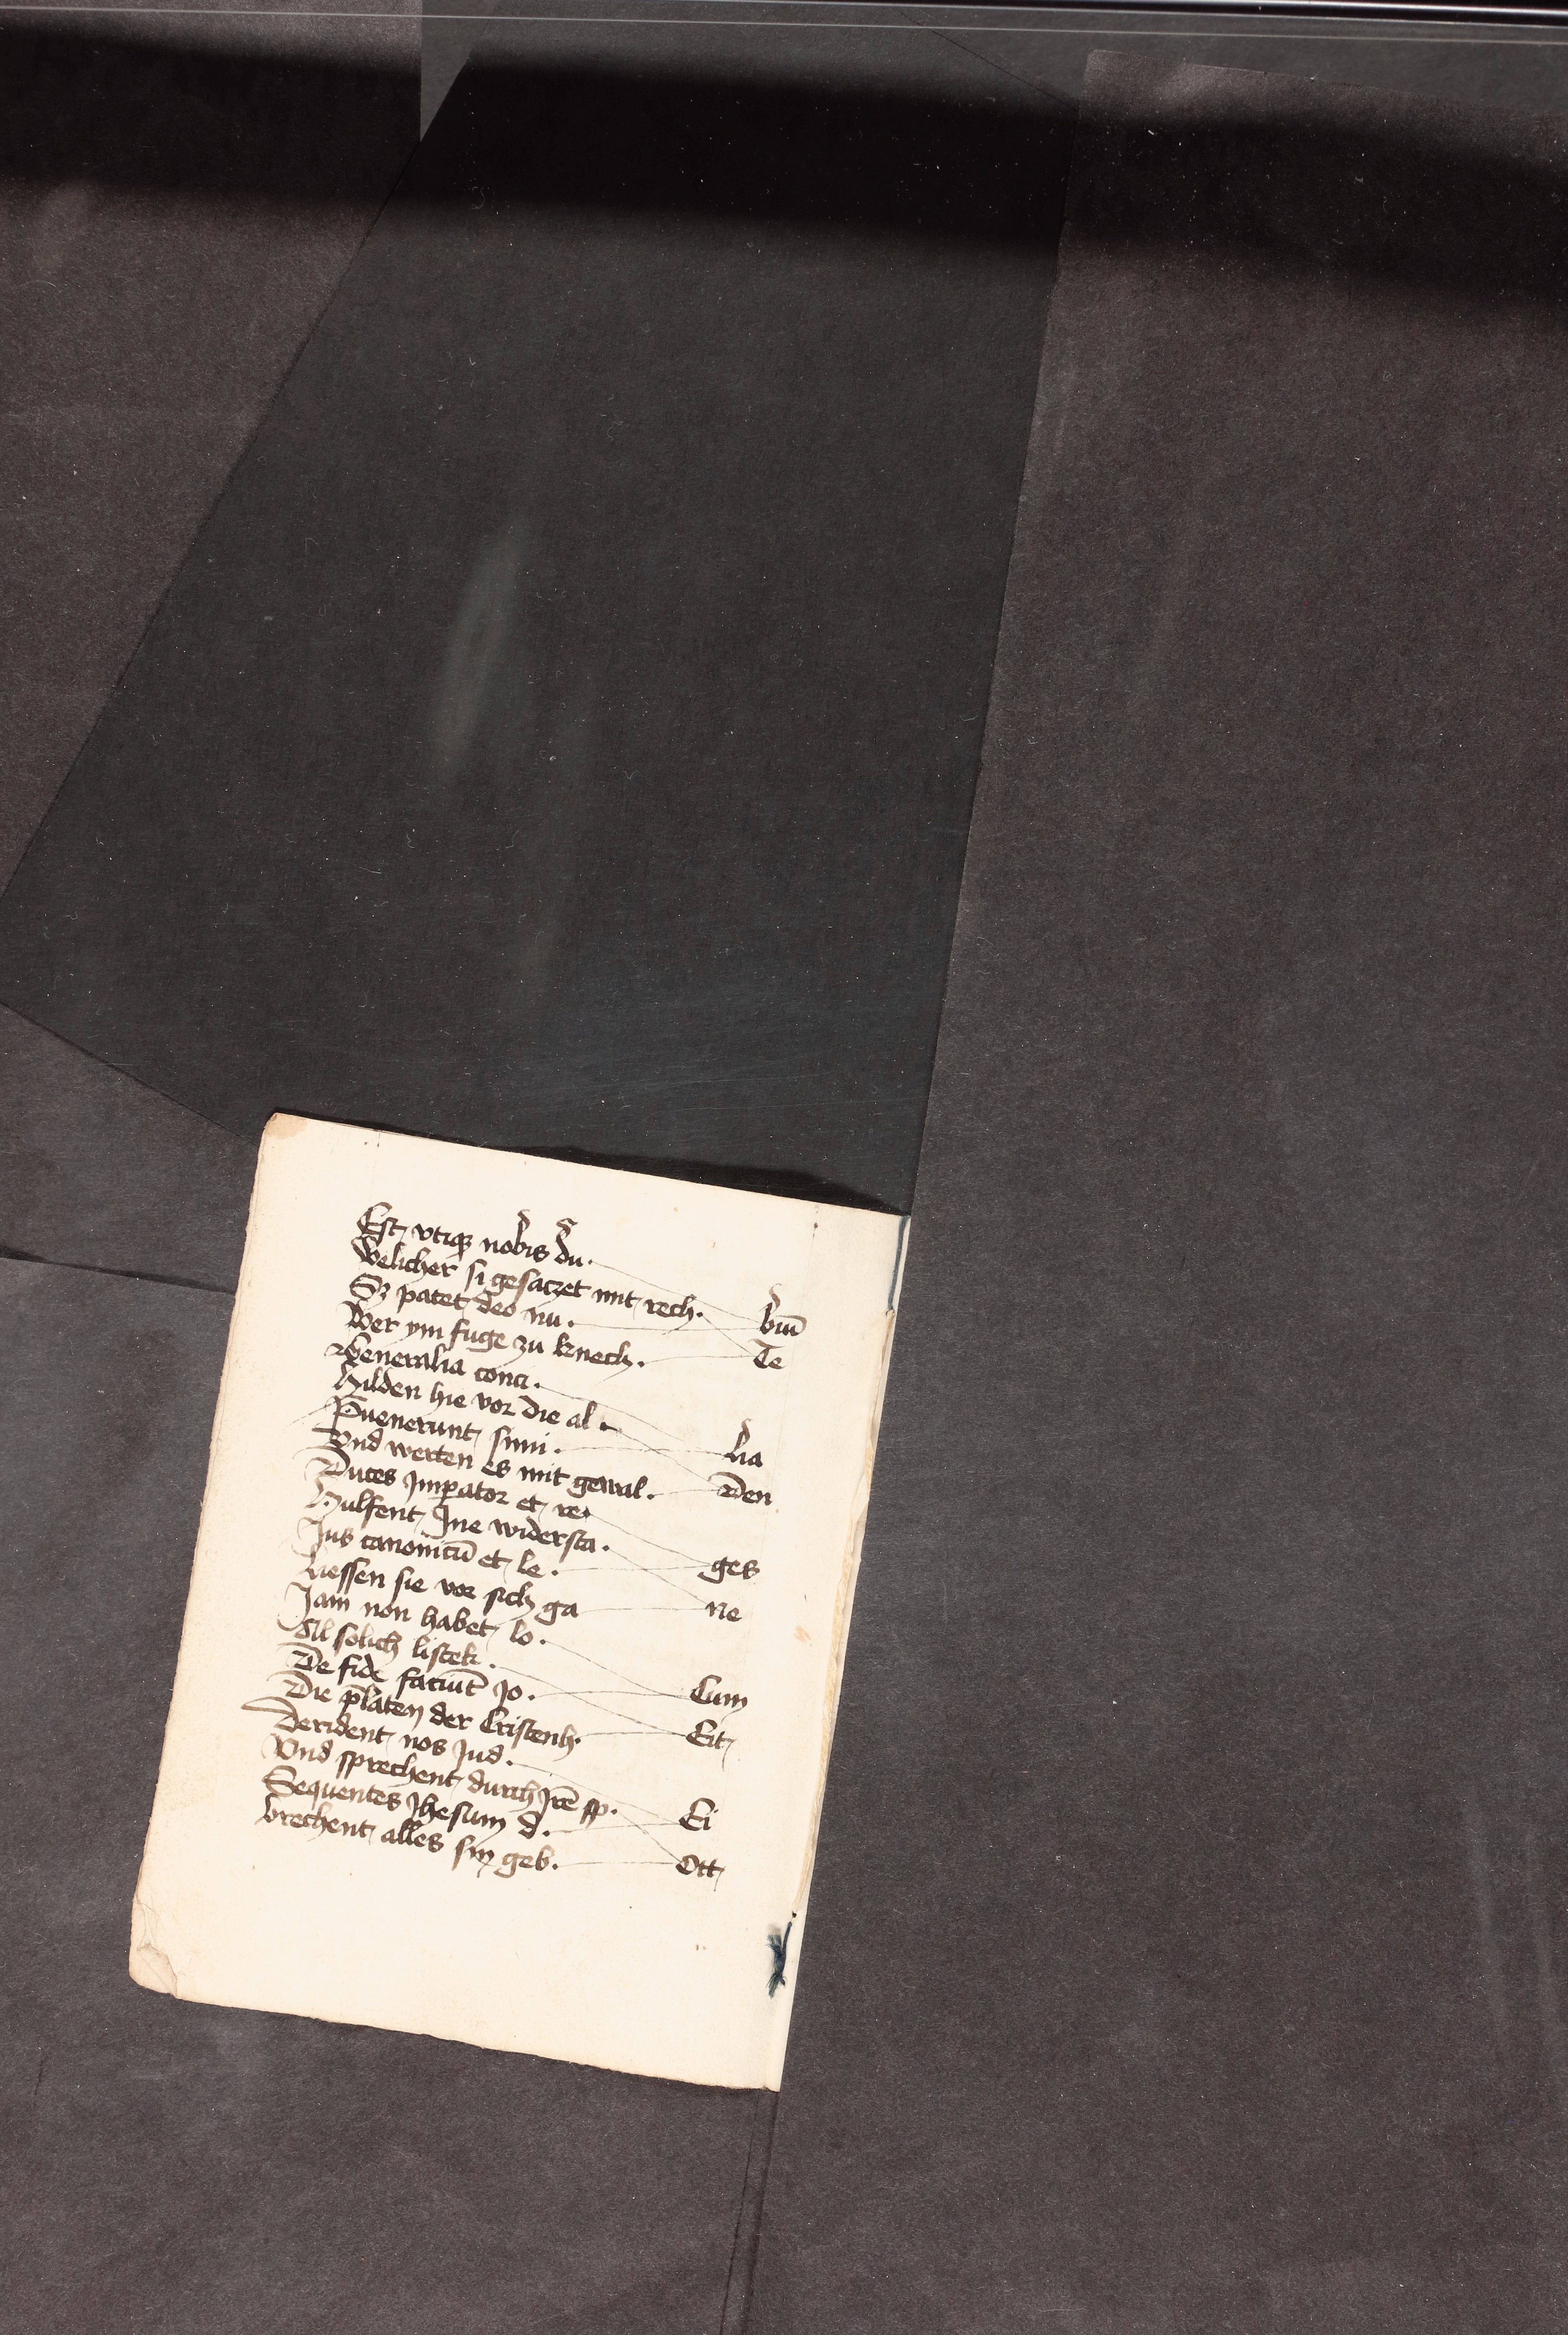 Est vtiqꝫ nobis du.
Welicher si gesaczet mit rech.
Sꝫ patet deo nu.
biū
Wer ym fuge zu knech.
Te
Generalia conci.
Hilden hie vor die al.
Puenerunt simi.
lia
Vnd werten es mit gewal.
Den
Duces Imperator et re
Hulfent Ine widersta.
Jus canonicū et le.
ges
Liessen sie vor sich ga
ne
Jam non habet lo.
All solich listek.
De fide faciūt Jo.
Cum
Die p̄laten der Cristenh.
Eit
Derident nos Jud.
Vnd sprechent durch Irē sp.
Sequentes Jhesum d.
Ei
brechent alles sin geb.
Ott